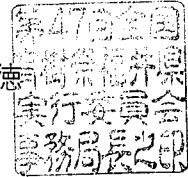 徳
第47回全国
育樹祭福井県
実行委員会
事務局長之印